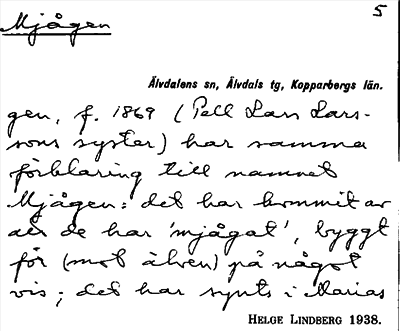 Mjågen 5
Älvdalens sn, Älvdals tg, Kopparbergs län.
gen, f. 1869 (Pell Lars Lars-
sons syster) har samma
förklaring till namnet
Mjågen: det har kommit av
att de har 'mjågat', byggt
för (mot älven) på något
vis; det har synts i Marias
HELGE LINDBERG 1938.